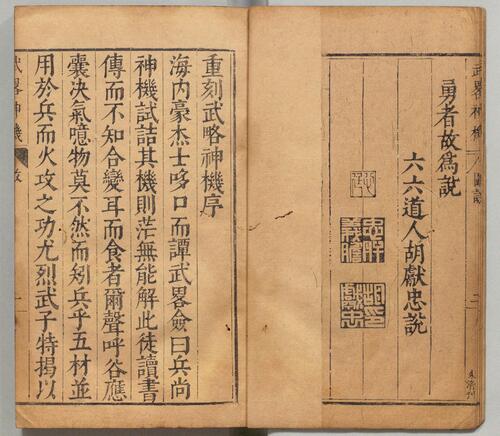 武畧神機
圖說
二
勇者故爲說
六六道人胡獻忠說
忠肝義膽
胡印獻忠
重刻武略神機序
海內豪杰士哆口而譚武畧僉曰兵尚
神機試詰其機則茫無能解此徒讀書
傳而不知合變耳而食者爾聲呼谷應
囊決氣噫物莫不然而矧兵乎五材並
用於兵而火攻之功尤烈武子特揭以
武畧神機
一